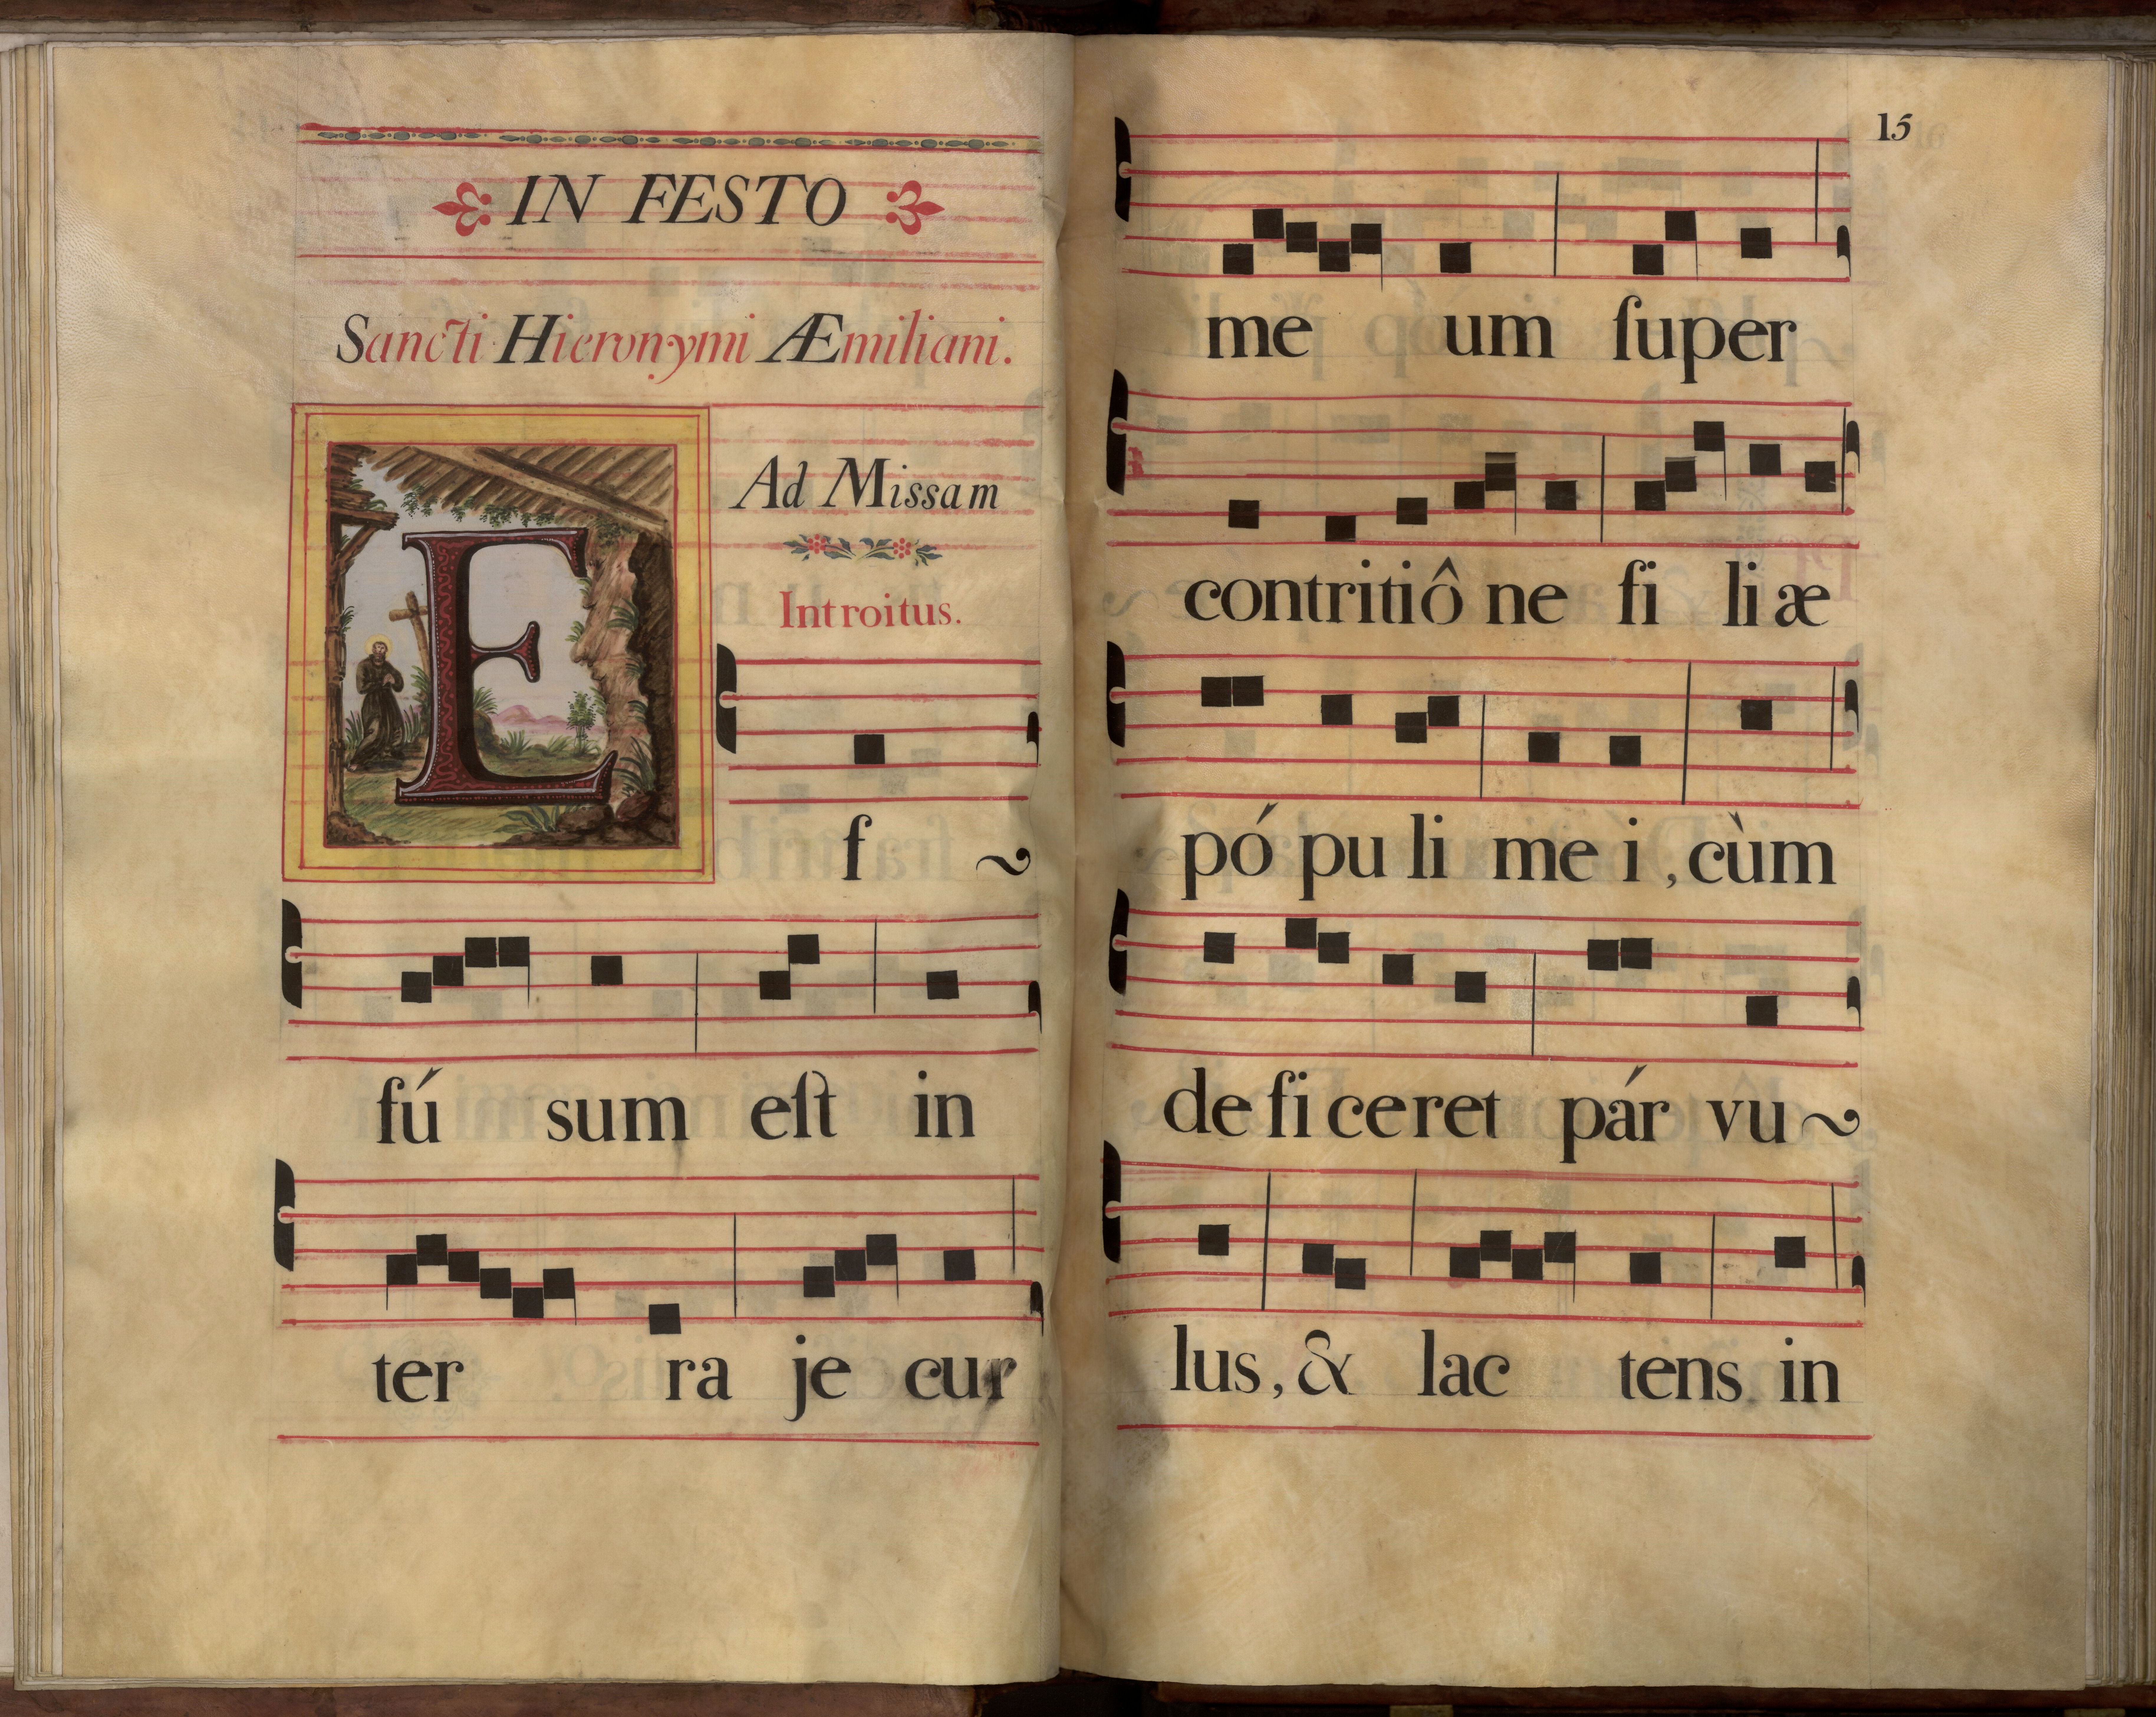 IN FESTO
Sancti Hieronymi Æmiliani.
Ad Missam
Introitus.
E f ~
fú sum eſt in
ter ra je cur
15
me um ſuper
contritiô ne fi li æ
pó pu li me i, cùm
de fi ce ret pár vu ~
lus, & lac tens in